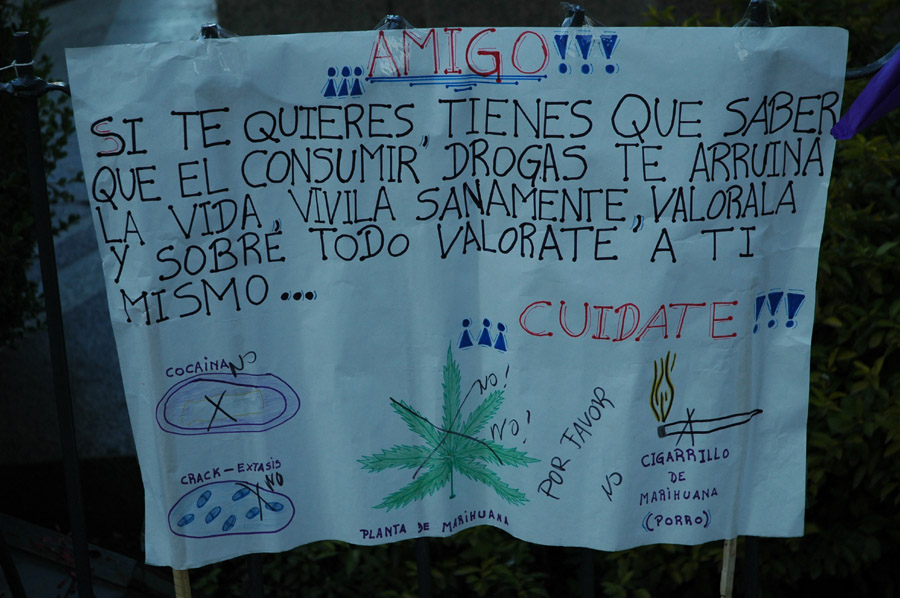 ¡¡¡AMIGO!!!
SI TE QUIERES, TIENES QUE SABER
QUE EL CONSUMIR, DROGAS TE ARRUINA
LA VIDA, VIVILA SANAMENTE, VALORALA
Y SOBRE TODO VALORATE, A TI
MISMO...
¡¡¡ CUIDATE !!!
COCAINA NO
CRACK-EXTASIS
NO
NO!
NO!
PLANTA DE MARIHUANA
POR FAVOR
NO
CIGARRILLO
DE
MARIHUANA
(PORRO)